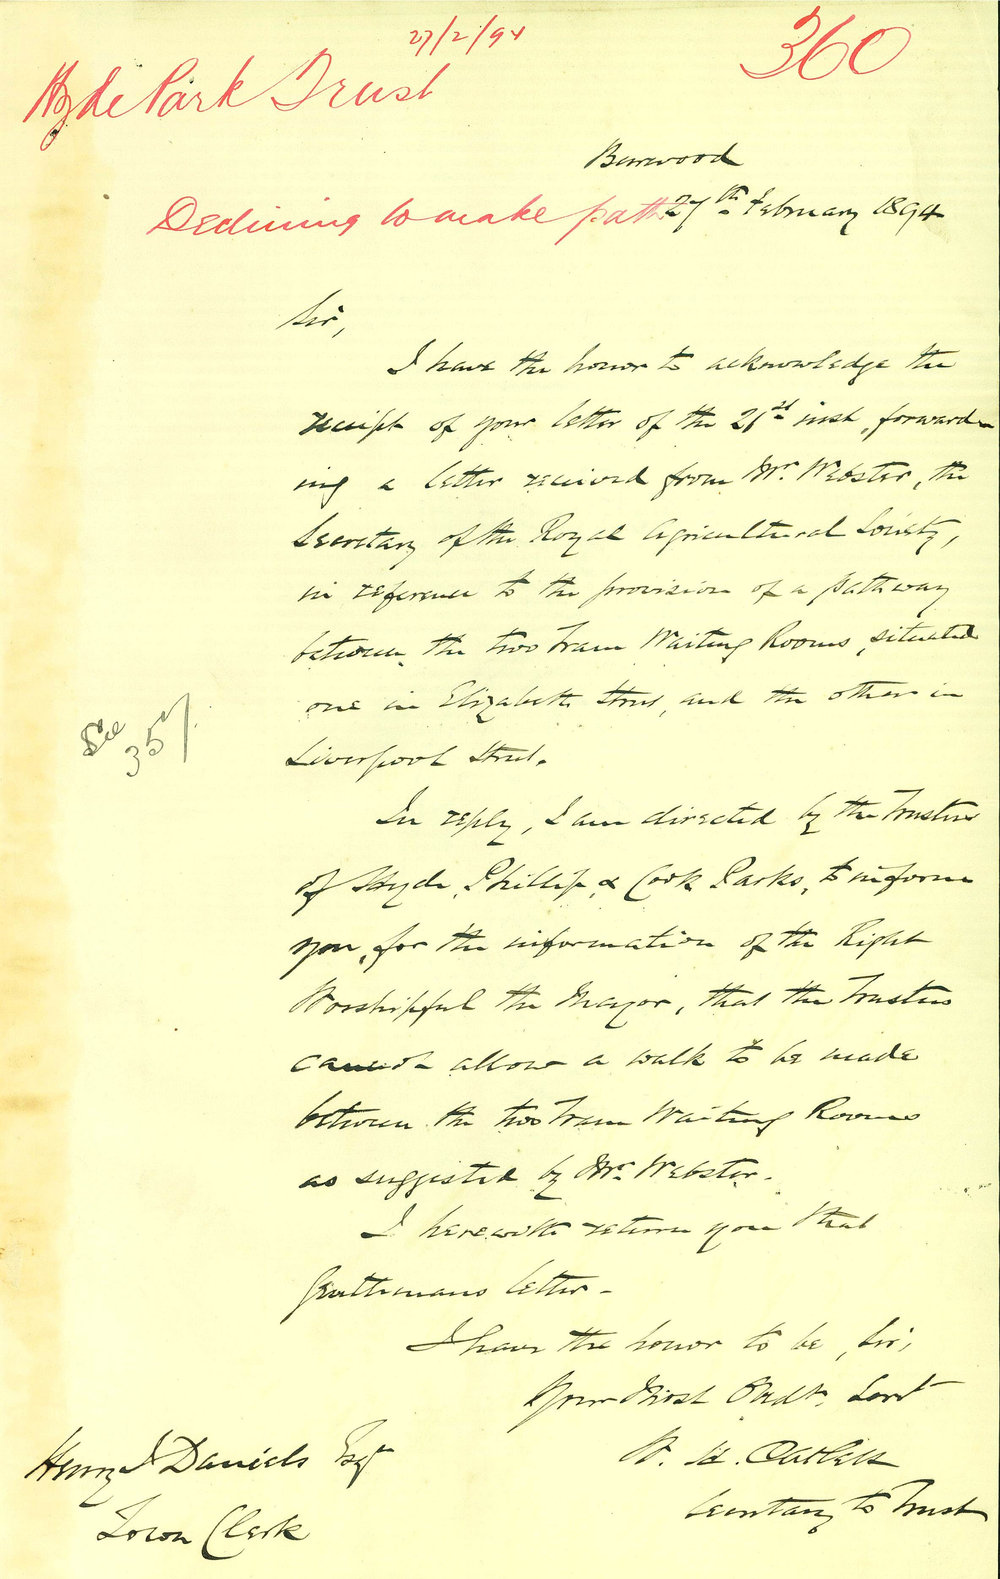 27/2/94
360
Hyde Park Trust
Burwood
Declining to make path
27th February 1894
Sir,
I have the honor to acknowledge the
receipt of your letter of the 21st inst, forward-
ing a letter received from Mr. Webster, the
Secretary of the Royal Agricultural Society,
in reference to the provision of a pathway
between the two Tram Waiting Rooms, situated
one in Elizabeth Street, and the other in
Liverpool Street.
See
357
In reply, I am directed by the Trustees
of Hyde, Phillip, & Cook Parks, to inform
you, for the information of the Right
Worshipful the Mayor, that the Trustees
cannot allow a walk to be made
between the two Tram Waiting Rooms
as suggested by Mr. Webster.
I herewith return you that
Gentlemans letter -
I have the honor to be, Sir,
Your Most Obdt. Servt
W. H. Catlett
Secretary to Trust
Henry J Daniels Esqr
Town Clerk